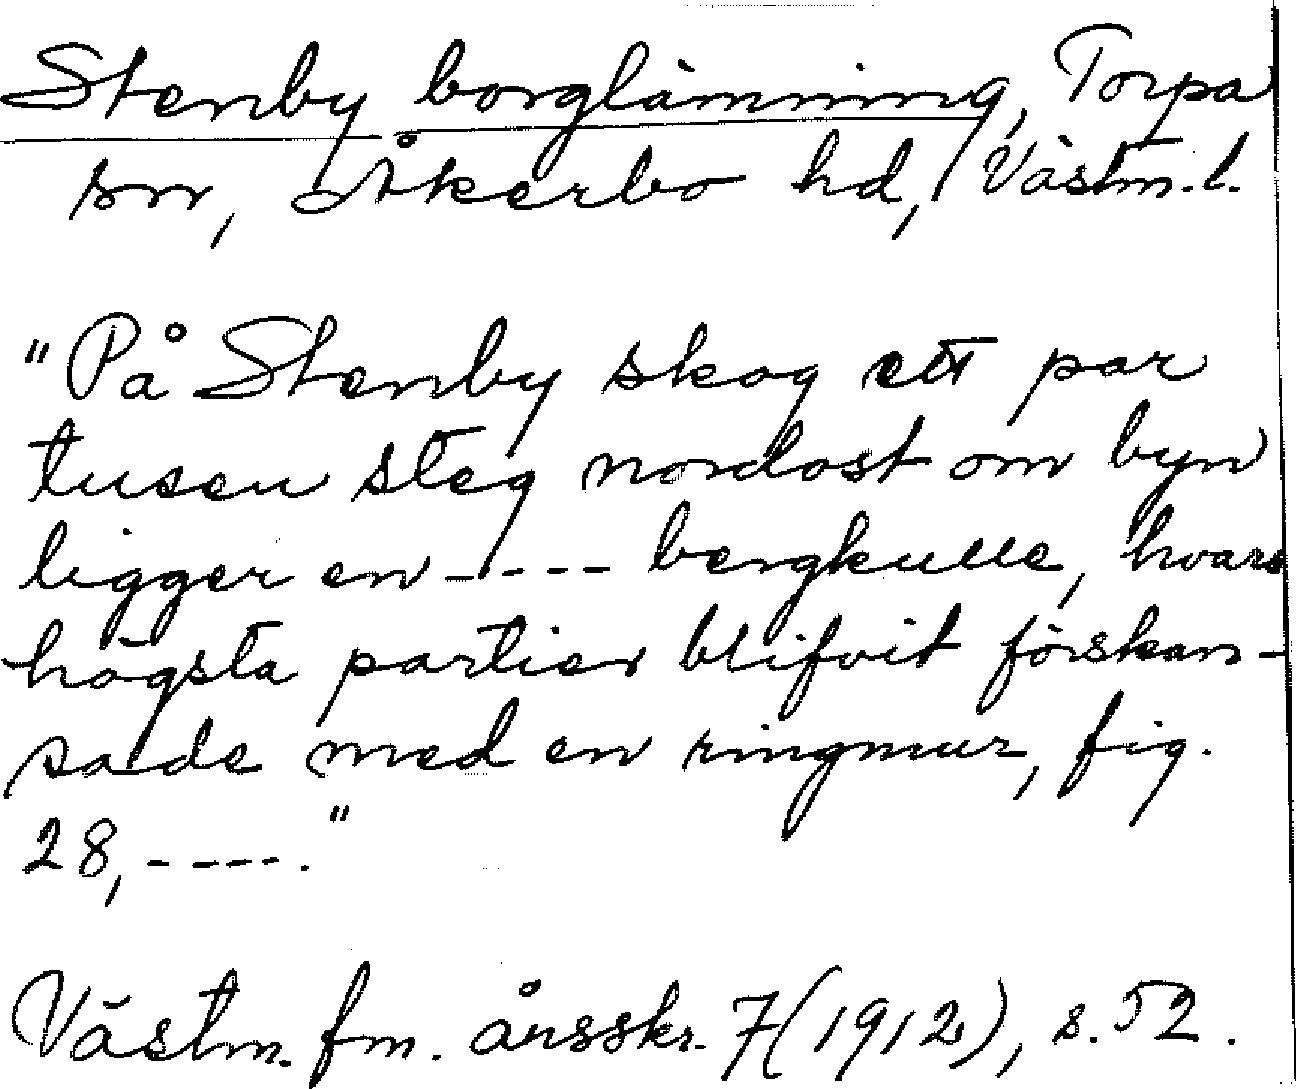 Stenby borglämning, Torpa
sn, Åkerbo hd, Västm.l.
"På Stenby skog ett par
tusen steg nordost om byn
ligger en ---- bergkulle, hvars
högsta partier blifvit förskan-
sade med en ringmur, fig.
28, ----."
Västm. fm. årsskr. 7 (1912), s. 52.